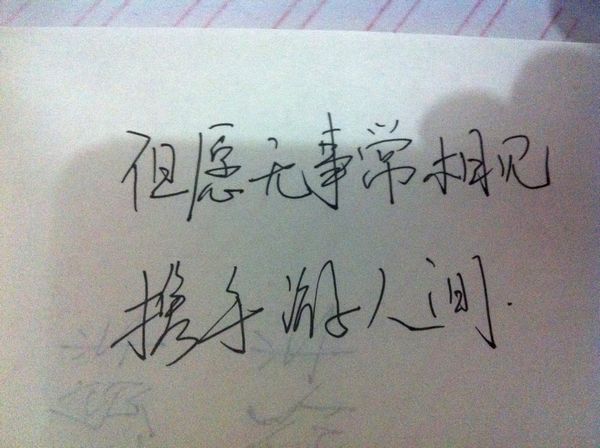 但愿无事常相见
携手游人间.